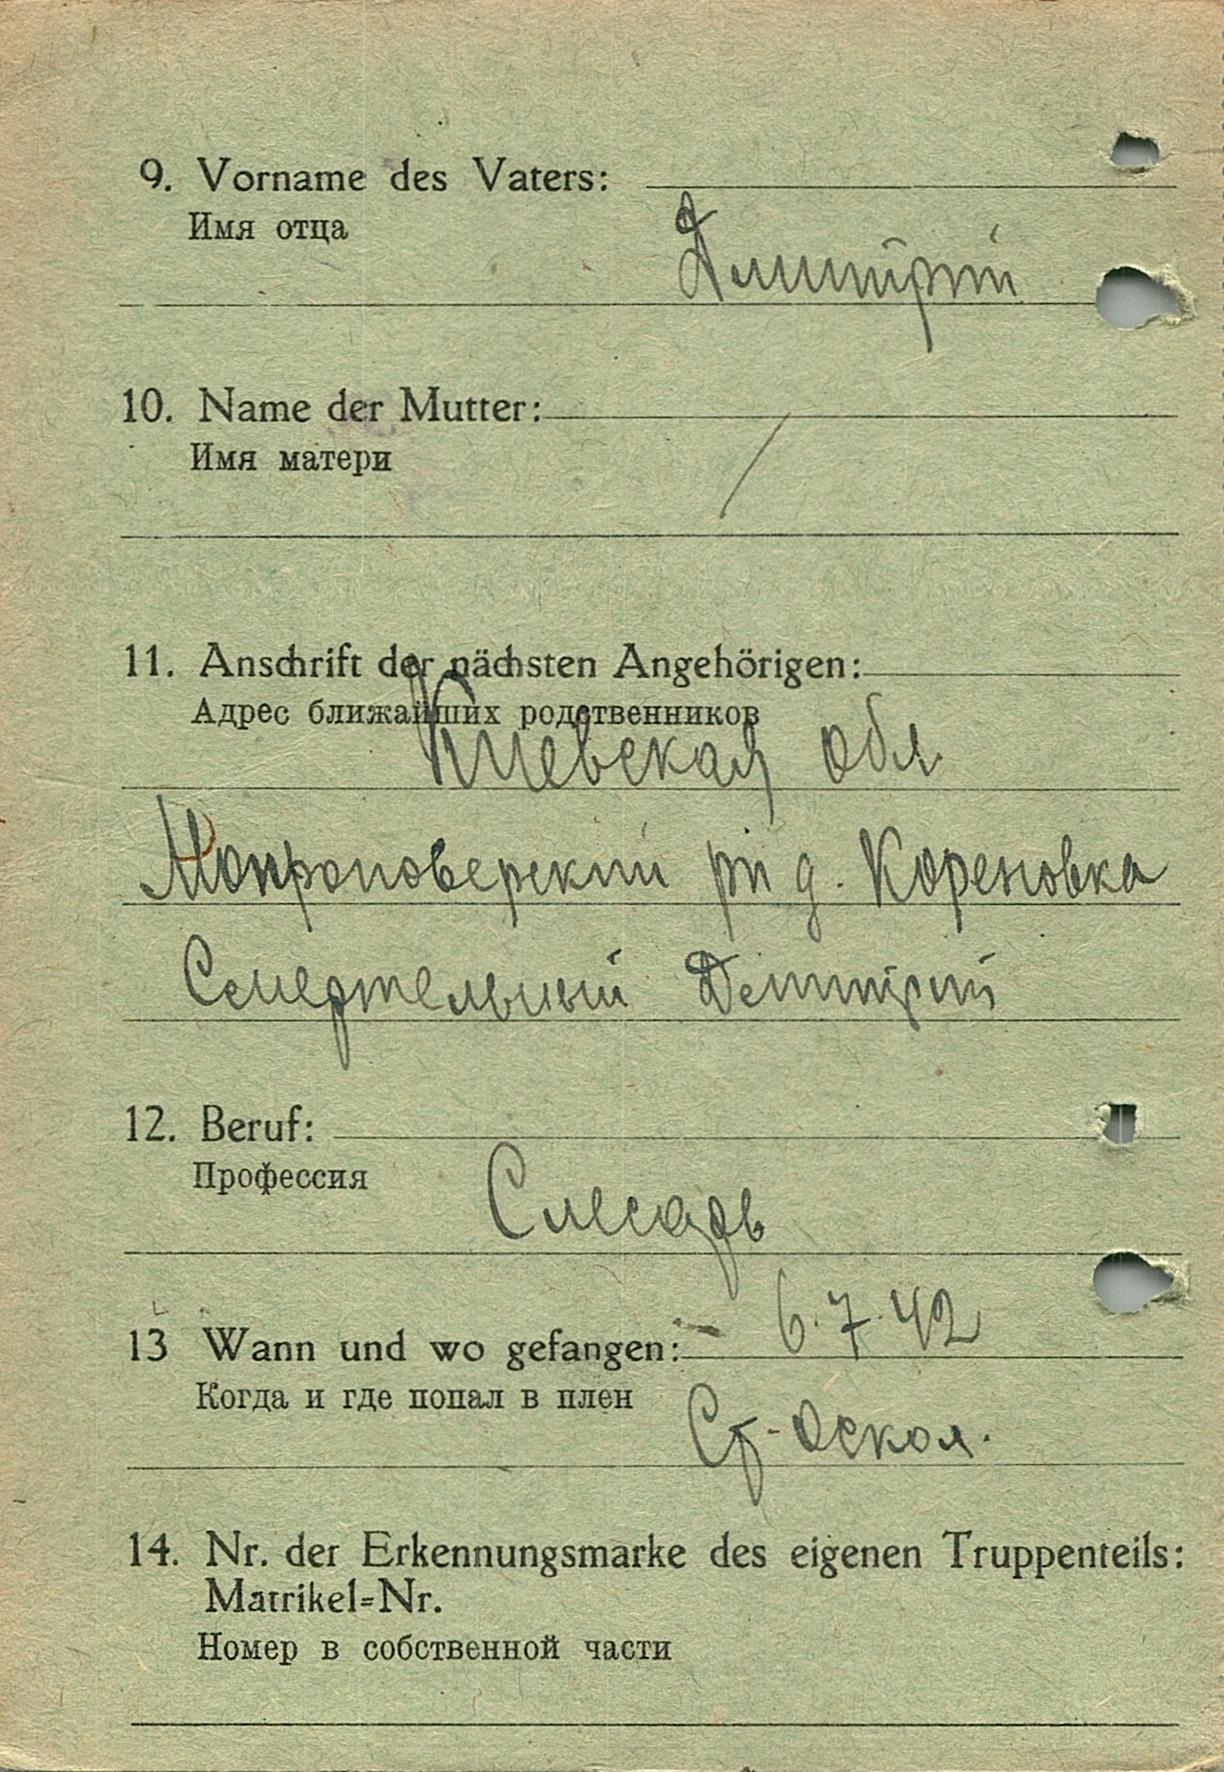 9. Vorname des Vaters:
Имя отца
Дмитрий
10. Name der Mutter:
Имя матери
/
11. Anschrift der nächsten Angehörigen:
Адрес ближайших родственников
Киевская обл
рн д. Кореновка
Семертельный Демитрий
12. Beruf:
Профессия
Слесарь
13 Wann und wo gefangen: - 6.7.42
Когда и где попал в плен
Ст-Оскол.
14. Nr. der Erkennungsmarke des eigenen Truppenteils:
Matrikel=Nr.
Номер в собственной части